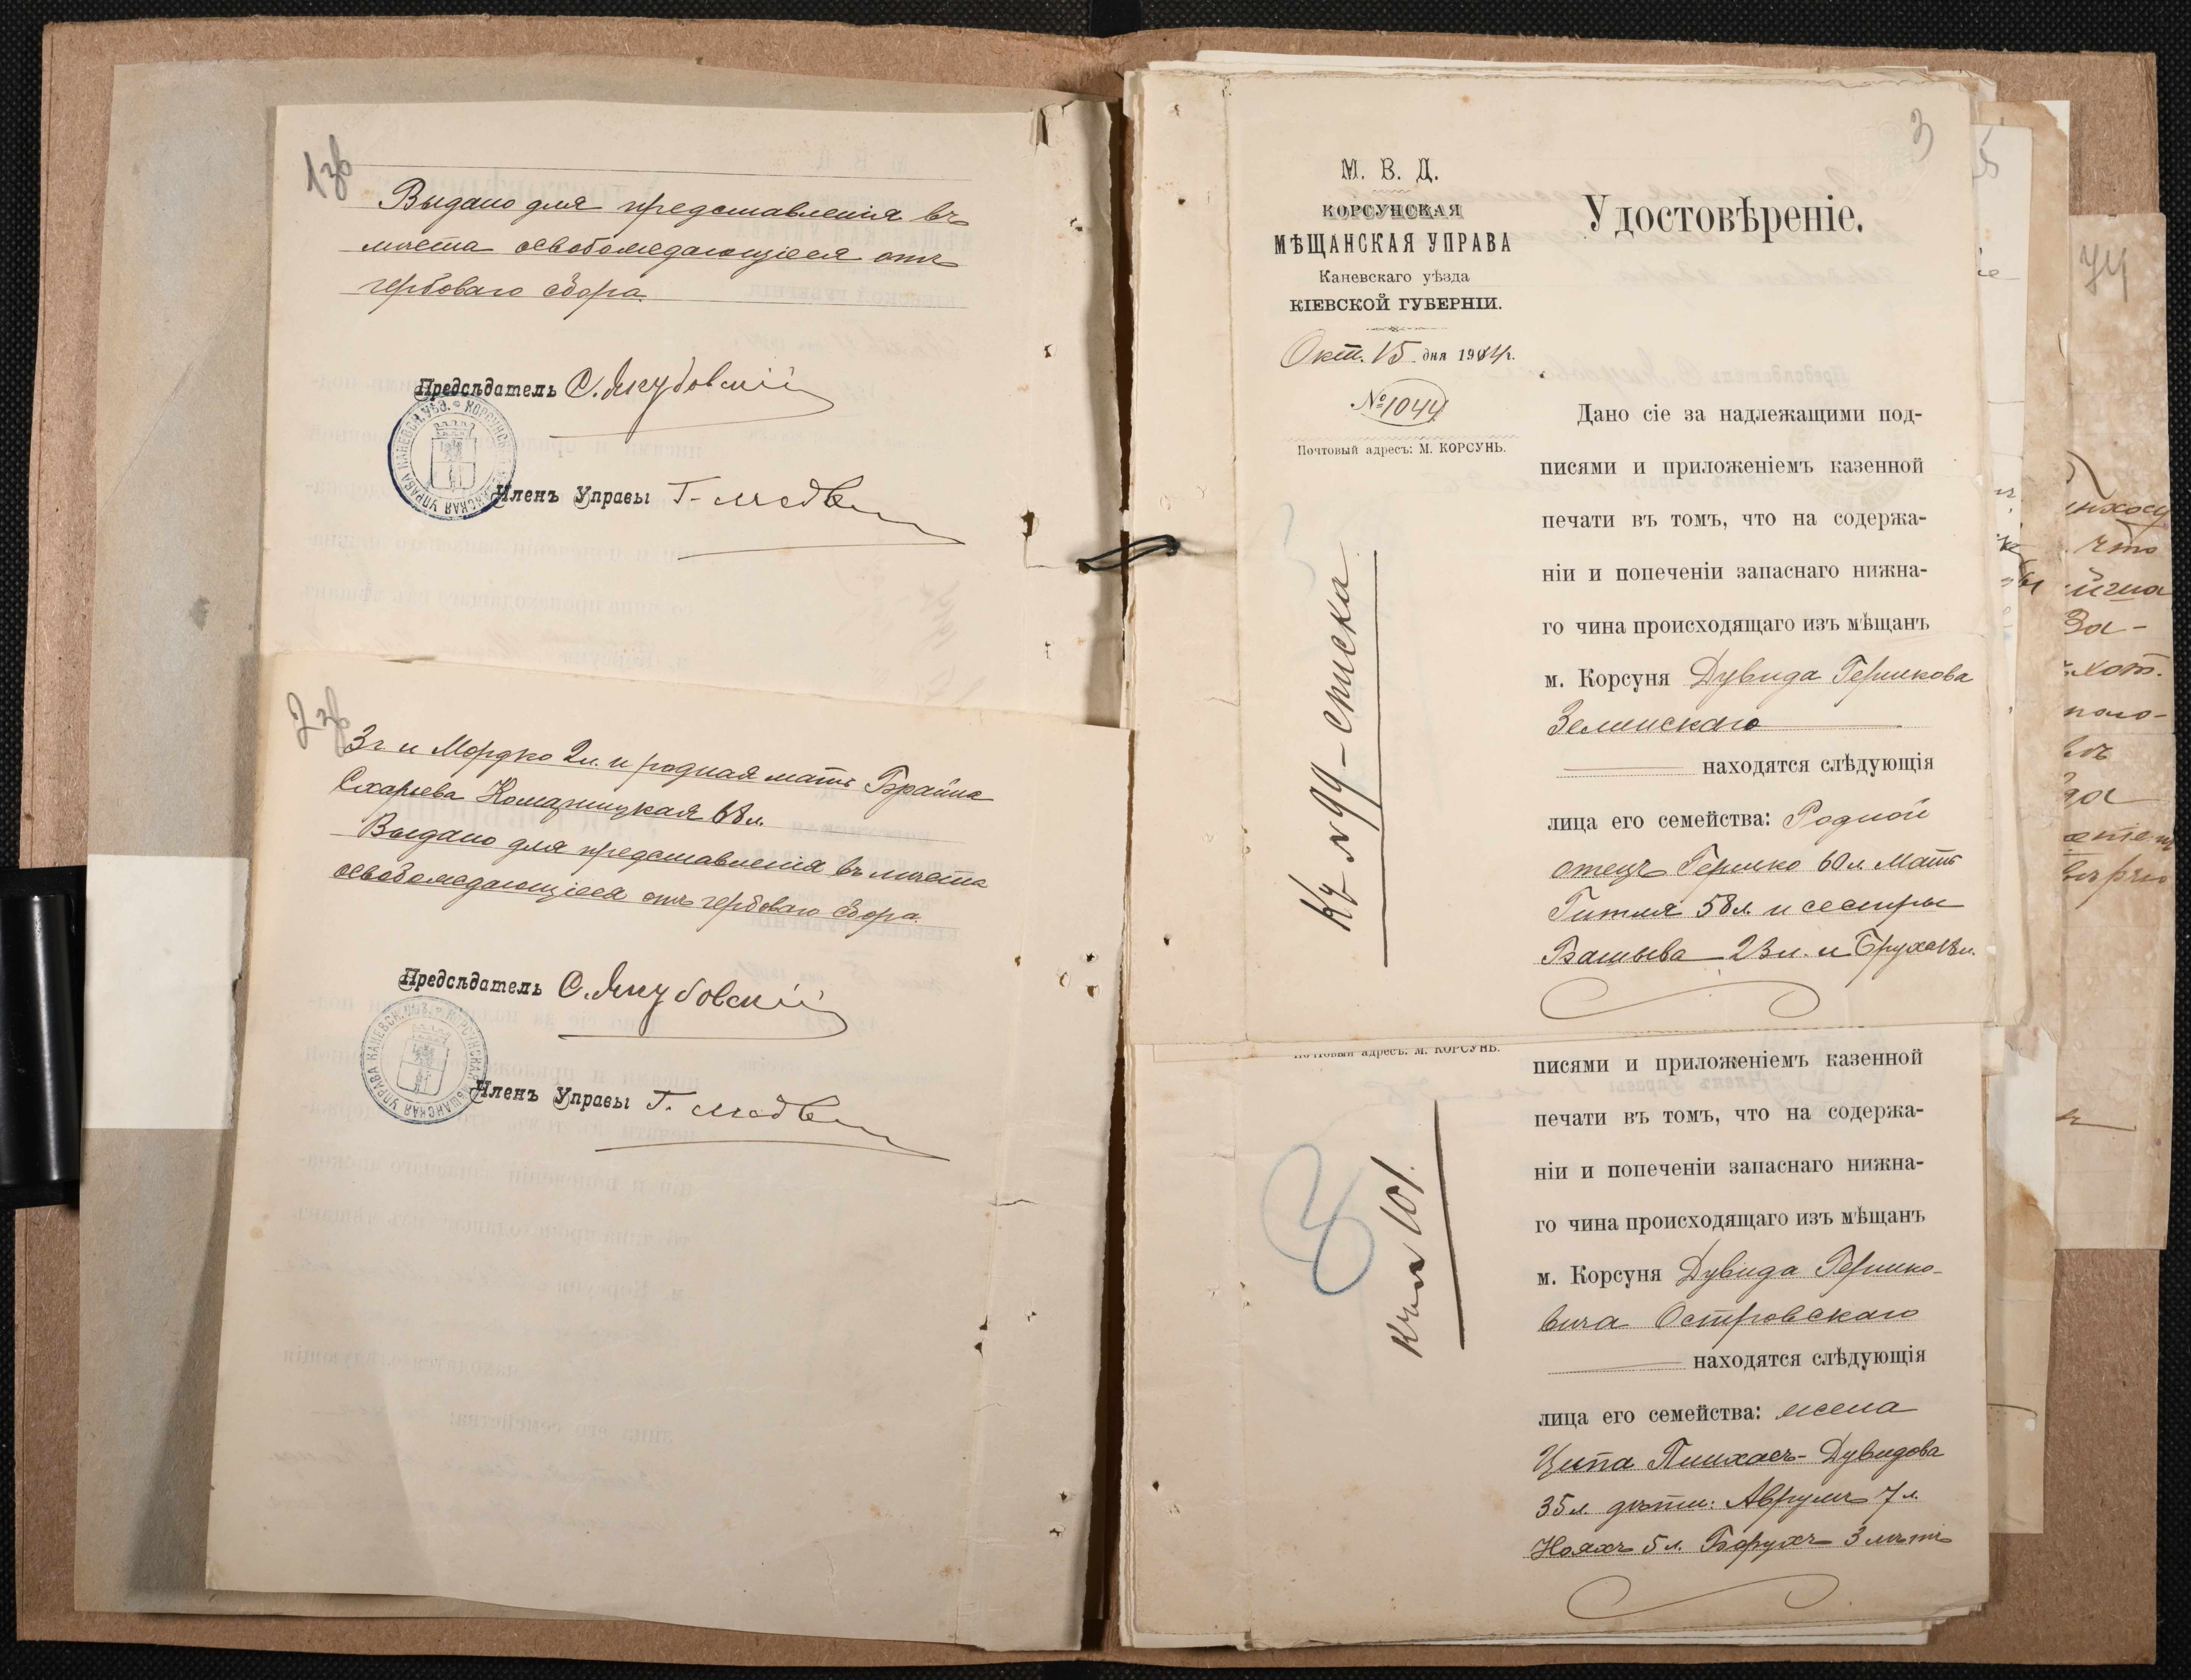 1об
Выдано для представленія въ
мѣста освобождающіеся отъ
гербоваго сбора.
Предсѣдатель С. Якубовскій
Членъ Управы Г.
КОРСУНСКАЯ МѢЩАНСКАЯ УПРАВА КАНЕВСК. УѢЗ.
2об
3 г. и Мордко 2 л. и родная мать Брайна
Сахарьева Комарницкая 68 л.
Выдано для представленія въ мѣста
освобождающіеся отъ гербоваго сбора.
Предсѣдатель С. Якубовскій
Членъ Управы Г.
КОРСУНСКАЯ МѢЩАНСКАЯ УПРАВА КАНЕВСК. УѢЗ.
3
М. В. Д.
КОРСУНСКАЯ
МѢЩАНСКАЯ УПРАВА
Каневскаго уѣзда
КІЕВСКОЙ ГУБЕРНІИ.
Окт. 15 дня 1904 г.
№ 1044
Почтовый адресъ: М. КОРСУНЬ.
Къ № 99 - списка
Удостовѣреніе.
Дано сіе за надлежащими под-
писями и приложеніемъ казенной
печати въ томъ, что на содержа-
ніи и попеченіи запаснаго нижна-
го чина происходящаго изъ мѣщанъ
м. Корсуня Дувида Гершкова
Зелинскаго
находятся слѣдующія
лица его семейства: Родной
отецъ Гершко 60 л. Мать
Гитля 58 л. и сестры
Башева 23 л. и Бруха 18 л.
Почтовый адресъ: М. КОРСУНЬ.
Къ № 101.
писями и приложеніемъ казенной
печати въ томъ, что на содержа-
ніи и попеченіи запаснаго нижна-
го чина происходящаго изъ мѣщанъ
м. Корсуня Дувида Гершко-
вича Островскаго
находятся слѣдующія
лица его семейства: жена
Ципа Пинхасъ-Дувидова
35 л. дѣти: Аврумъ 7 л.
Нояхъ 5 л. Борухъ 3 лѣтъ